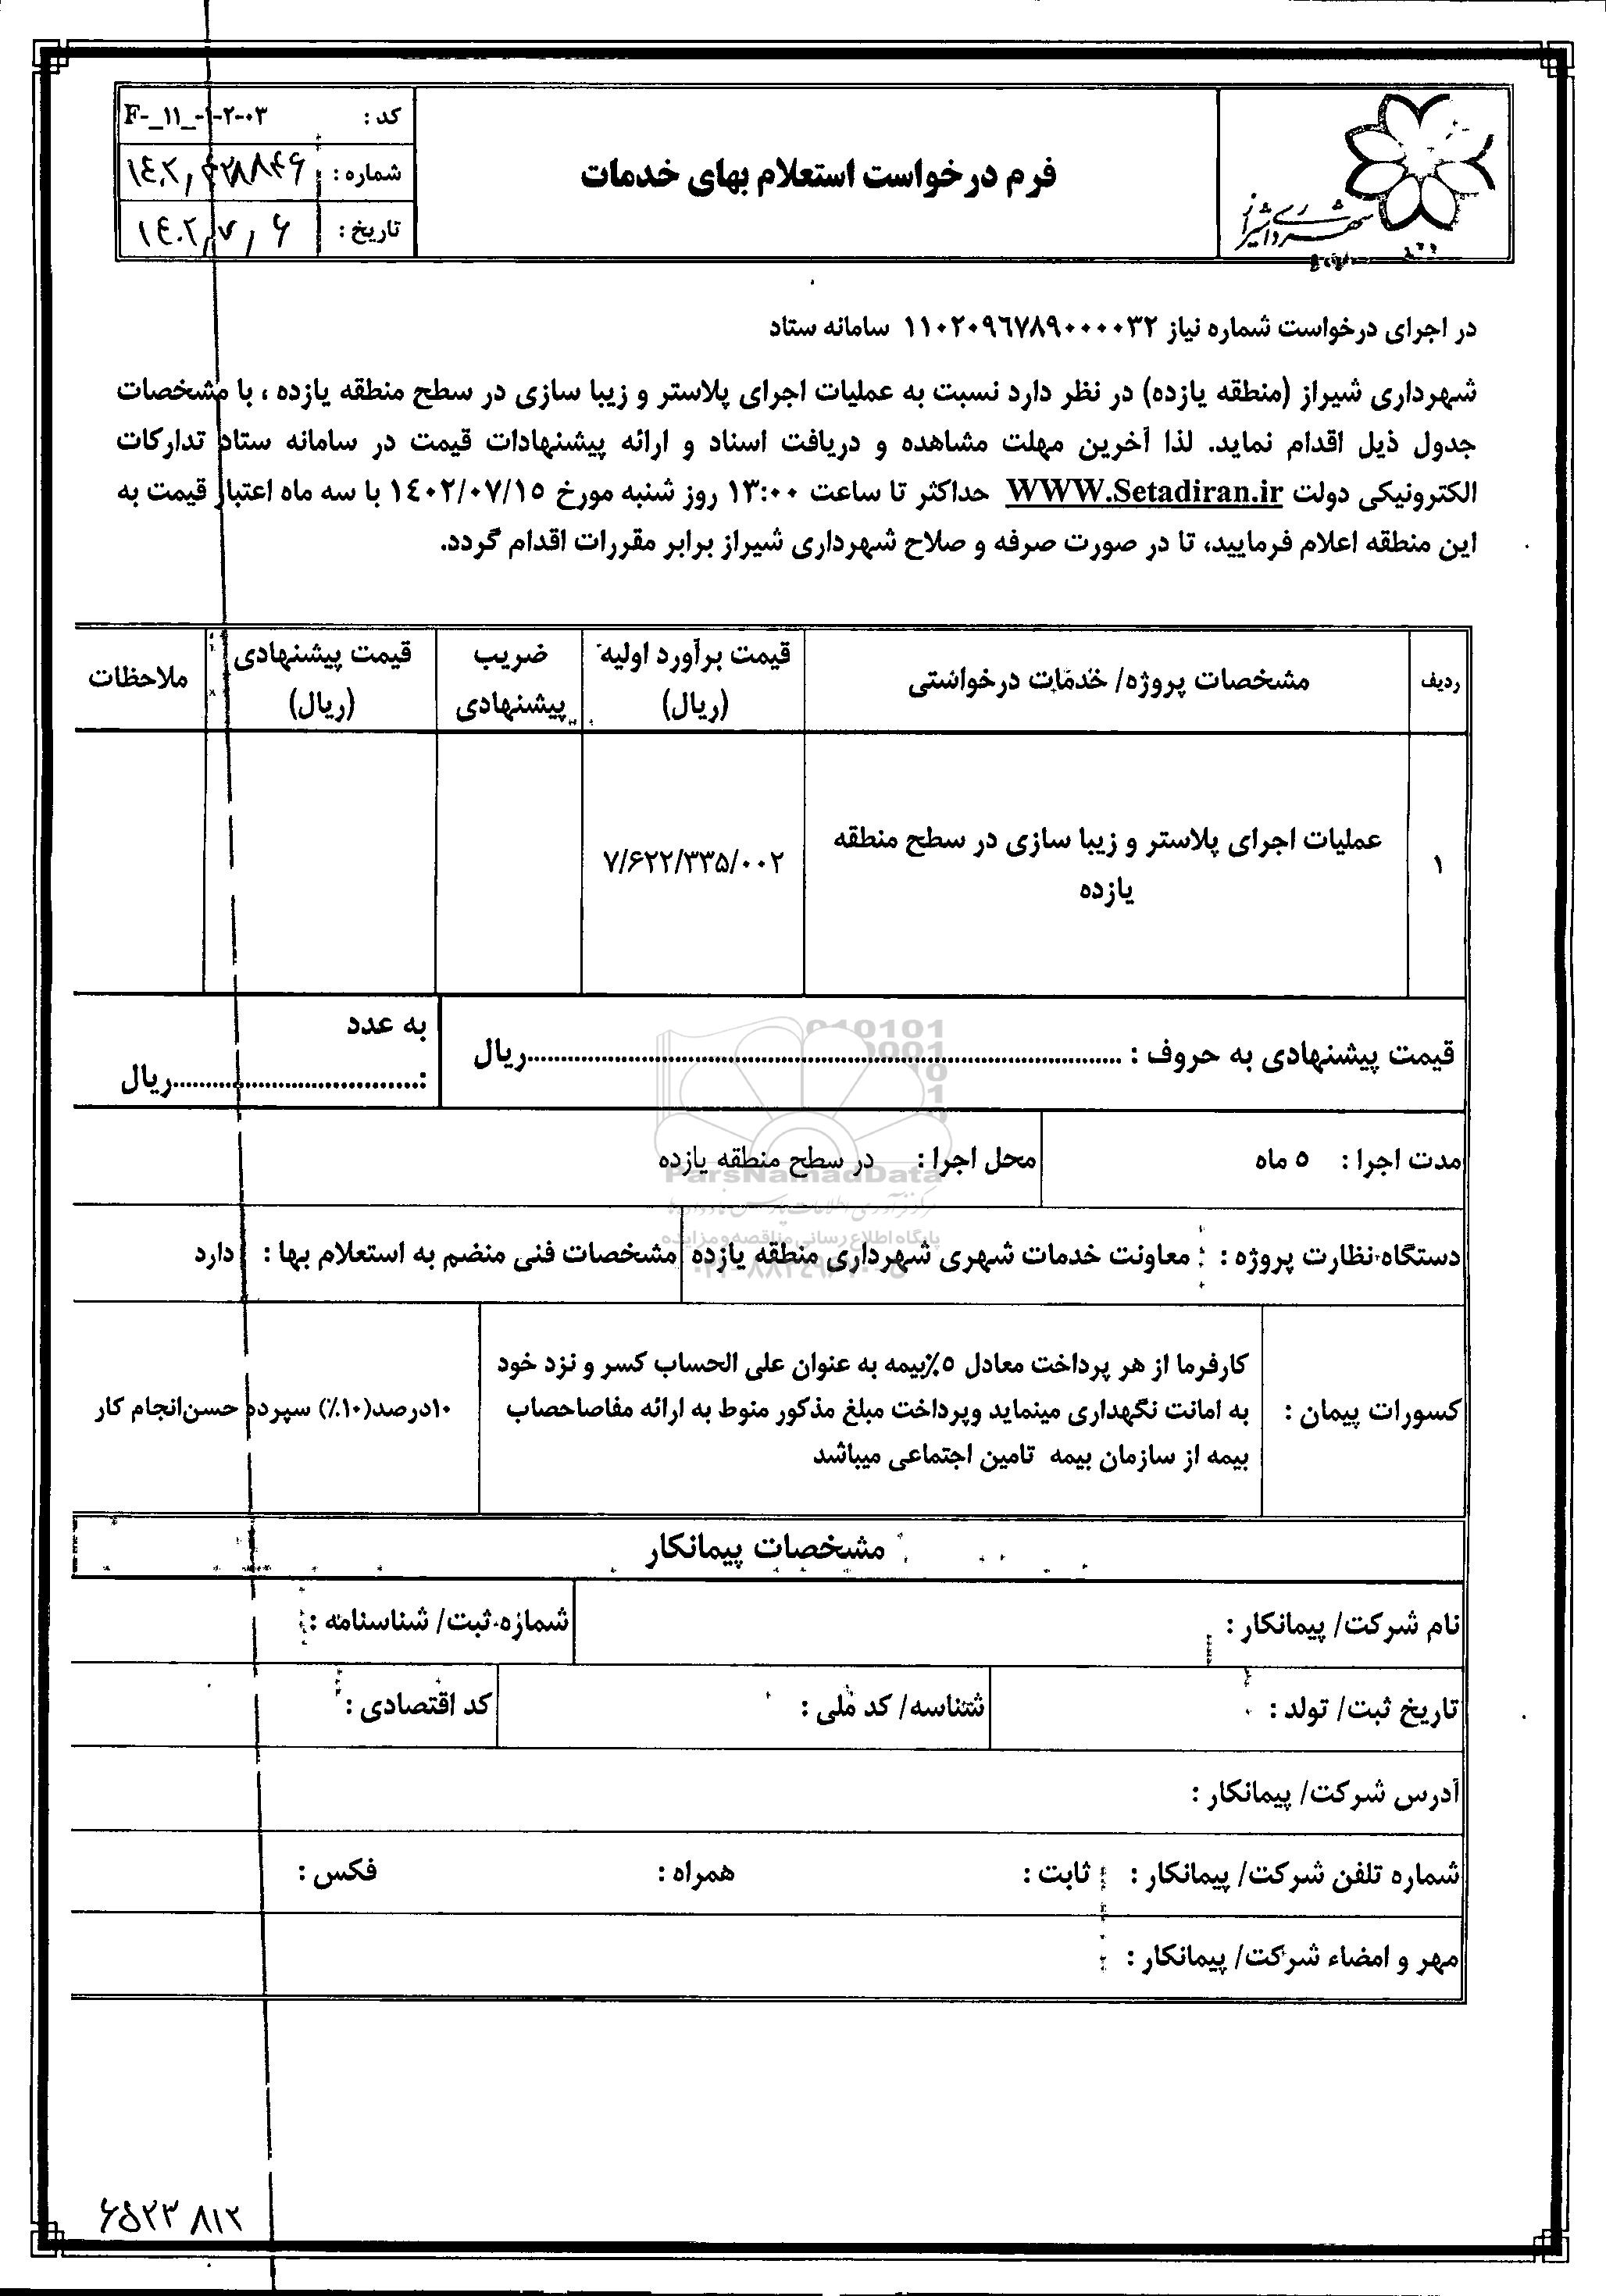 شهرداری شیراز
فرم درخواست استعلام بهای خدمات
کد : F-_۱۱_-۱-۲-۰۳
شماره :
تاریخ : ۱۴۰۲٫۷٫۶
در اجرای درخواست شماره نیاز ۱۱۰۲۰۹۶۷۸۹۰۰۰۰۳۲ سامانه ستاد
شهرداری شیراز (منطقه یازده) در نظر دارد نسبت به عملیات اجرای پلاستر و زیبا سازی در سطح منطقه یازده ، با مشخصات
جدول ذیل اقدام نماید. لذا آخرین مهلت مشاهده و دریافت اسناد و ارائه پیشنهادات قیمت در سامانه ستاد تدارکات
الکترونیکی دولت WWW.Setadiran.ir حداکثر تا ساعت ۱۳:۰۰ روز شنبه مورخ ۱۴۰۲/۰۷/۱۵ با سه ماه اعتبار قیمت به
این منطقه اعلام فرمایید، تا در صورت صرفه و صلاح شهرداری شیراز برابر مقررات اقدام گردد.
ردیف
مشخصات پروژه/ خدمات درخواستی
قیمت برآورد اولیه
(ریال)
ضریب
پیشنهادی
قیمت پیشنهادی
(ریال)
ملاحظات
۱
عملیات اجرای پلاستر و زیبا سازی در سطح منطقه
یازده
۷/۶۲۲/۳۳۵/۰۰۲
قیمت پیشنهادی به حروف : ..........................................................................................ریال
به عدد
:......................................ریال
مدت اجرا : ۵ ماه
محل اجرا : در سطح منطقه یازده
دستگاه نظارت پروژه : معاونت خدمات شهری شهرداری منطقه یازده
مشخصات فنی منضم به استعلام بها : دارد
کسورات پیمان :
کارفرما از هر پرداخت معادل ۵٪بیمه به عنوان علی الحساب کسر و نزد خود
به امانت نگهداری مینماید وپرداخت مبلغ مذکور منوط به ارائه مفاصاحصاب
بیمه از سازمان بیمه تامین اجتماعی میباشد
۱۰درصد(۱۰٪) سپرده حسن‌انجام کار
مشخصات پیمانکار
نام شرکت/ پیمانکار :
شماره ثبت/ شناسنامه :
تاریخ ثبت/ تولد :
شناسه/ کد ملی :
کد اقتصادی :
آدرس شرکت/ پیمانکار :
شماره تلفن شرکت/ پیمانکار : ثابت : همراه : فکس :
مهر و امضاء شرکت/ پیمانکار :
۶۵۲۳ ۸۱۲
ParsNamadData
پایگاه اطلاع رسانی مناقصه و مزایده